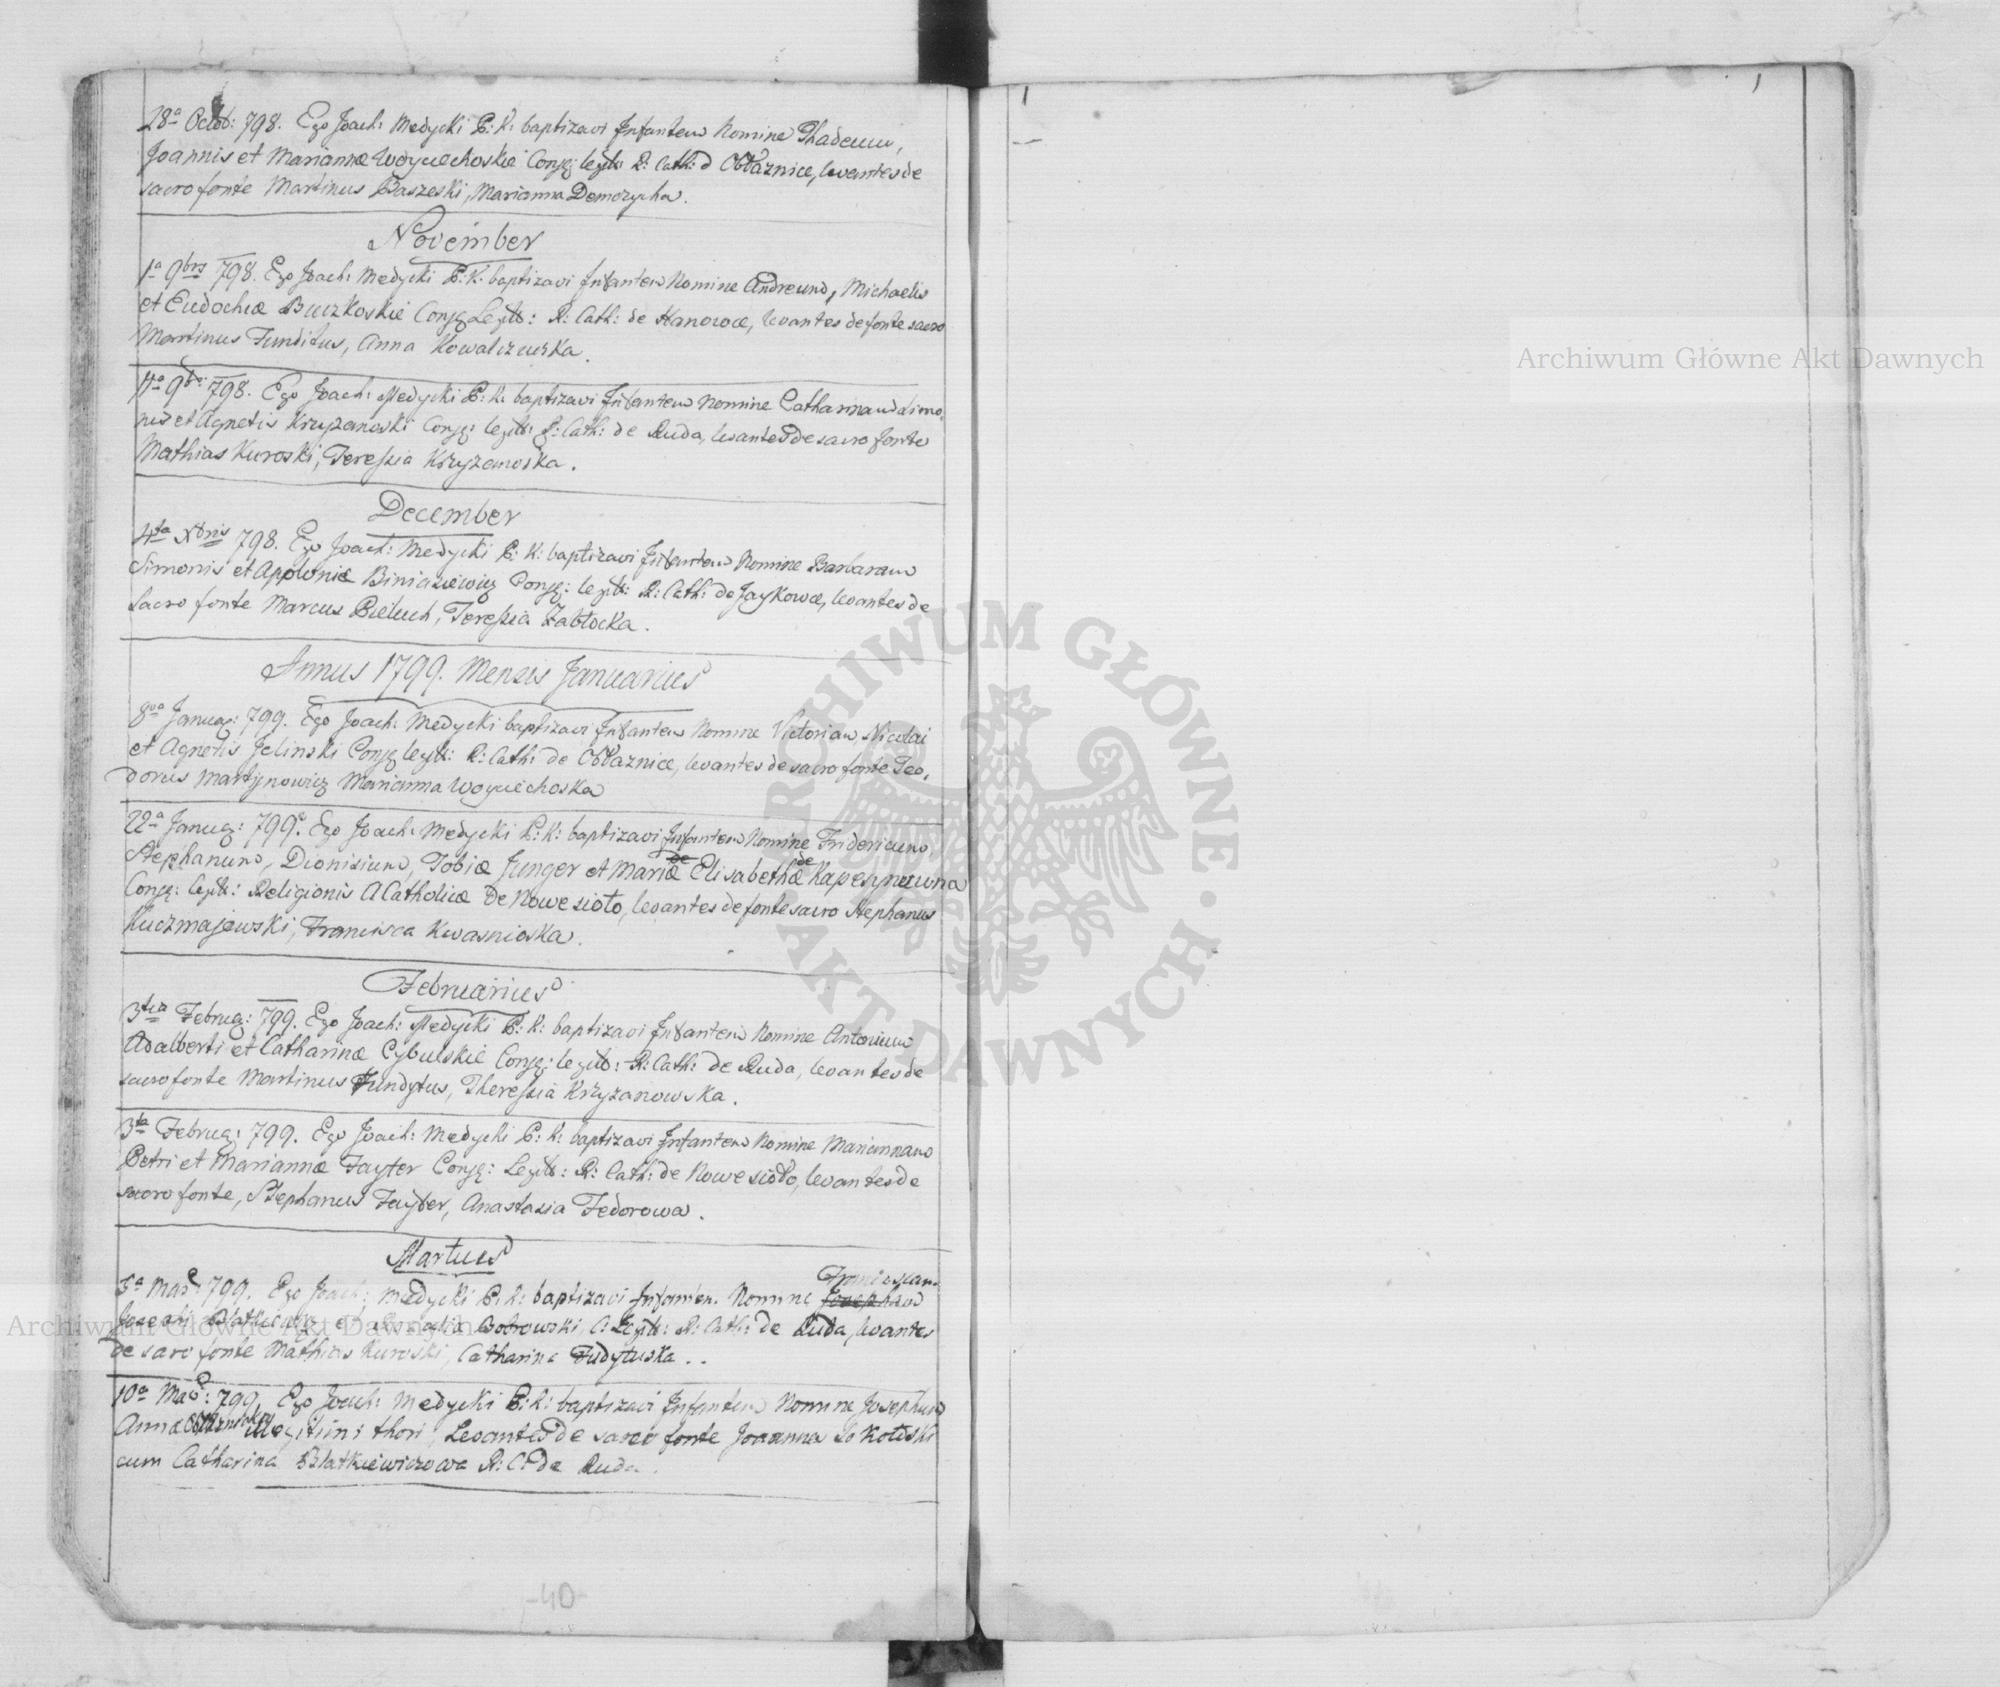 28a Octob: 798. Ego Joach: Medycki P: K: baptizavi Infantem Nomine Thadeum,
Joannis et Mariannæ Woyciechoskie Conjg: legit: R: Cath: d Obłaznice, levantes de
sacro fonte Martinus Baszeski, Marianna
November
1a 9bris 798. Ego Joach: Medycki P: K: baptizavi Infantem Nomine Andreum, Michaelis
et Eudochiæ Buczkoskie Conjg Legit: R: Cath: de Hanowce, levantes de fonte sacro
Martinus Funditus, Anna Kowalczuska.
11a 9bri 798. Ego Joach: Medycki P: K: baptizavi Infantem Nomine Catharinam Simo-
nis et Agnetis Kryzanoski Conjg: legit: R: Cath: de Ruda, levantes de sacro fonte
Mathias Kuroski, Teressia Kryzanoska.
December
4ta Xbris 798. Ego Joach: Medycki P: K: baptizavi Infantem Nomine Barbaram
Simonis et Apoloniæ Biniasiewicz Conjg: legit: R: Cath: de Jaykowce, levantes de
Sacro fonte Marcus Pieluch, Teressia Zabłocka.
Annus 1799. Mensis Januarius
8va Januar: 799. Ego Joach: Medycki baptizavi Infantem Nomine Victoriam, Nicolai
et Agnetis Jelinski Conjg legit: R: Cath: de Obłaznice, levantes de sacro fonte Teo-
dorus Martynowicz Marianna Woyciechoska
22a Januar: 799. Ego Joach: Medycki P: K: baptizavi Infantem Nomine Fridericum,
Stephanum, Dionisium, Tobiæ Junger et Mariæ Elisabethæ de
Conjg: legit: Religionis ACatholicæ de Nowe sioło, levantes de fonte sacro Stephanus
Kuczmajewski, Francisca Kwasnioska.
Februarius
3tia Februar: 799. Ego Joach: Medycki P: K: baptizavi Infantem Nomine Antonium
Adalberti et Catharinæ Cybulskie Conjg: legit: R: Cath: de Ruda, levantes de
sacro fonte Martinus Fundytus, Theressia Kryzanowska.
3ta Februar: 799. Ego Joach: Medycki P: K: baptizavi Infantem Nomine Mariannam
Petri et Mariannæ Fayter Conjg: Legit: R: Cath: de Nowe sioło, levantes de
sacro fonte, Stephanus Fayter, Anastasia Fedorowa.
Martius
5a Mar: 799. Ego Joach: Medycki P: K: baptizavi Infantem. Nomine Josephum
Josephi Błatkiewicz et Bobrowski, C: Legit: R: Cath: de Ruda, levantes
de saro fonte Mathias Kuroski, Catharina Fudytuska..
10a Mar: 799. Ego Joach: Medycki P: K: baptizavi Infantem Nomine Josephum
Annæ illegitimi thori, Levantes de sacro fonte Joannes Sokołski
cum Catharina Błatkiewiczowa R: C: de Ruda.
-40-
Archiwum Główne Akt Dawnych
Archiwum Główne Akt Dawnych
ARCHIWUM GŁÓWNE · AKT DAWNYCH ·